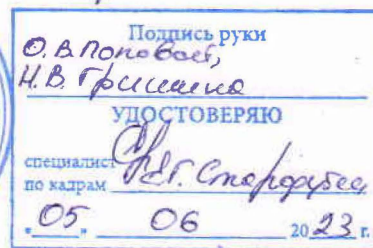 Подпись руки
О.В. Поповой,
Н.В. Гришина
УДОСТОВЕРЯЮ
специалист
по кадрам
"05" 06 2023 г.